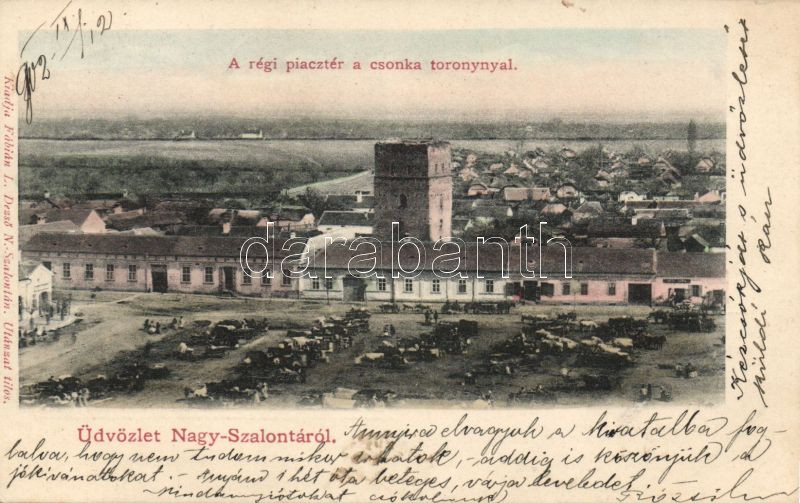 902 IX/12
A régi piacztér a csonka toronynyal.
Kiadja Fábián L. Dezső N.-Szalontán. Utánzat tilos.
darabanth
Üdvözlet Nagy-Szalontáról.
Annyira elvagyok a hivatalba fog-
balva, hogy nem tudom mikor irhatok, - addig is köszönjük a
jókivánatokat. - Anyám 1 hét óta beteges, várja leveledet.
Mindannyiótokat csókolva
Kézcsókját s üdvözletét
küldi Kán